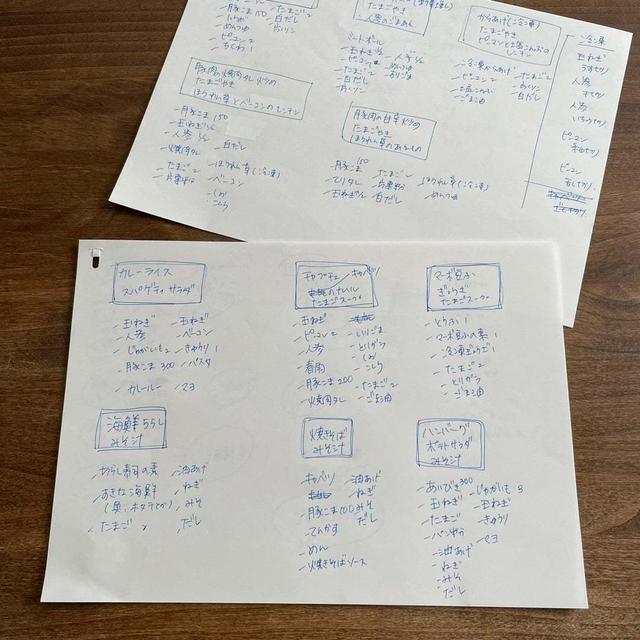 たまごやき
人参のごまあえ
からあげ(冷凍)
たまごやき
ピーマンと塩こんぶの
レンチン
冷凍
玉ねぎ
うすぎり
人参
千切り
人参
いちょう切り
ピーマン
ピーマン
豚こま150
たまご2
白だし
めんつゆ
みりん
ピーマン2
ちくわ1
ミートボール
玉ねぎ1/2
ピーマン
たまご2
白だし
みりん
人参1/2
めんつゆ
冷凍からあげ
ピーマン2
塩こんぶ
ごま油
たまご2
みりん
白だし
豚肉の焼肉のタレ炒め
たまごやき
ほうれん草とベーコンのレンチン
豚こま150
玉ねぎ1/2
人参1/2
焼肉のタレ
たまご2
片栗粉
白だし
ほうれん草(冷凍)
ベーコン
しお
こしょう
豚肉の甘辛炒め
たまごやき
豚こま150
てりタレ
玉ねぎ1/2
たまご2
片栗粉
白だし
ほうれん草(冷凍)
めんつゆ
カレーライス
スパゲティサラダ
玉ねぎ
人参
じゃがいも2
豚こま300
カレールー
玉ねぎ
ベーコン
きゅうり1
パスタ
マヨ
チャプチェ
キャベツ
のナムル
たまごスープ
玉ねぎ
ピーマン2
人参
春雨
豚こま200
焼肉のタレ
とりがら
しお
こしょう
たまご2
ごま油
マーボ豆ふ
ぎょうざ
たまごスープ
とうふ1
マーボ豆ふの素1
冷凍ぎょうざ1
たまご2
とりがら
ごま油
海鮮ちらし
みそ汁
ちらし寿司の素
おさしみ海鮮
たまご2
油あげ
ねぎ
みそ
だし
焼きそば
みそ汁
キャベツ
豚こま100
てんかす
めん
焼きそばソース
油あげ
ねぎ
みそ
だし
ハンバーグ
ポテトサラダ
みそ汁
あいびき300
玉ねぎ
たまご
パン粉
油あげ
ねぎ
みそ
だし
じゃがいも3
玉ねぎ
きゅうり
マヨ